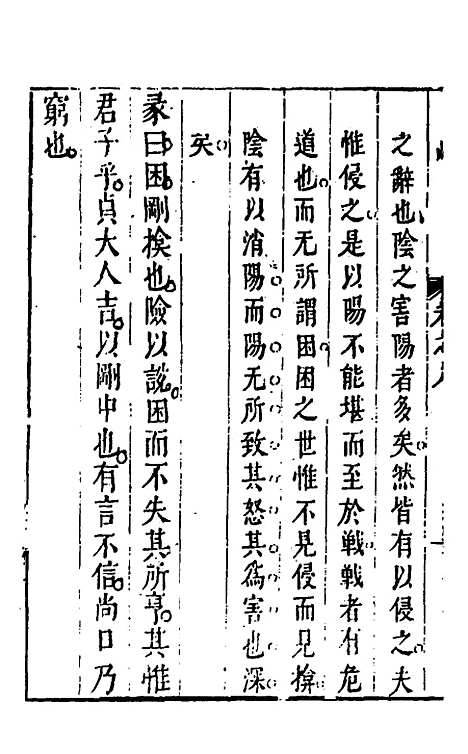 之辭也陰之害陽者多矣然皆有以侵之夫
惟侵之是以陽不能堪而至於戦戦者有危
道也而无所謂困困之世惟不見侵而見揜
陰有以消陽而陽无所致其怒其爲害也深
矣
彖曰困剛揜也險以說困而不失其所亨其惟
君子乎貞大人吉以剛中也有言不信尚口乃
窮也